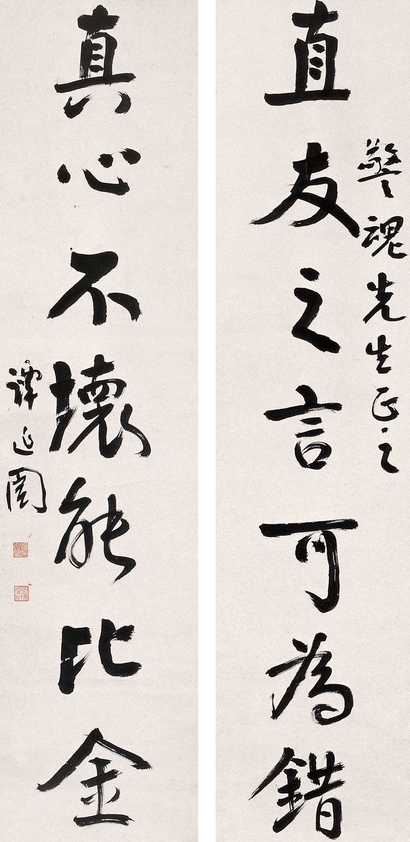 直友之言可為錯
警魂先生正之
真心不壞能比金
譚延闓